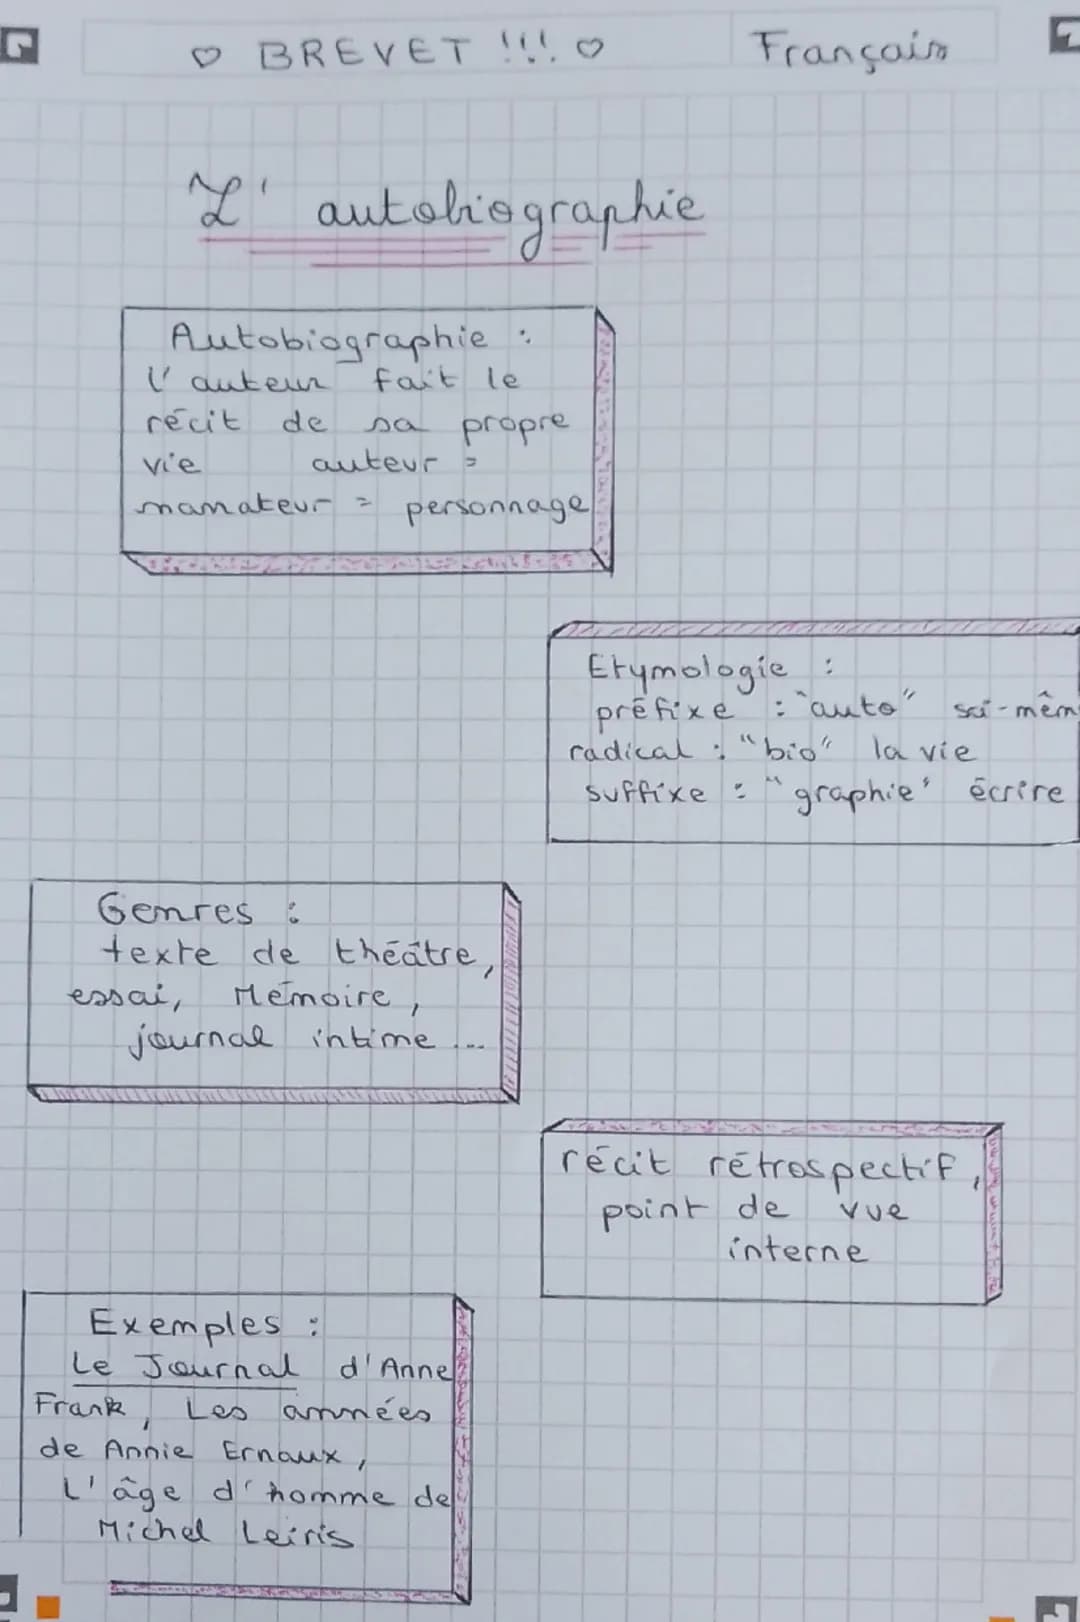 ♡ BREVET !!! ♡ Français
L' autobiographie
Autobiographie :
l'auteur fait le
récit de sa propre
vie auteur =
narrateur = personnage
Etymologie :
préfixe : "auto" soi-mêm
radical : "bio" la vie
suffixe : "graphie" écrire
Genres :
texte de théâtre,
essai, Mémoire,
journal intime ...
récit rétrospectif,
point de vue
interne
Exemples :
Le Journal d'Anne
Frank, Les années
de Annie Ernaux,
L'âge d'homme de
Michel Leiris